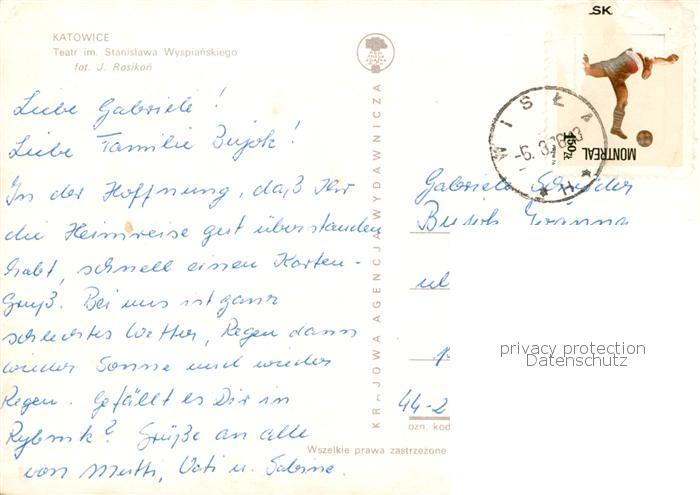 KATOWICE
Teatr im. Stanisława Wyspiańskiego
fot. J. Rosikoń
Liebe Gabriele!
Liebe Familie Bujok!
In der Hoffnung, daß Ihr
die Heimreise gut überstanden
habt, schnell einen Karten-
Gruß. Bei uns ist ganz
schlechtes Wetter, Regen dann
wieder Sonne und wieder
Regen. Gefällt es Dir in
Rybnik? Grüße an alle
von Mutti, Vati u. Sabine.
KRAJOWA AGENCJA WYDAWNICZA
SK
1.50 ZŁ
MONTREAL
WISŁA
-6.
Gabriele
ul
44-2
ozn. kod
Wszelkie prawa zastrzeżone
privacy protection
Datenschutz